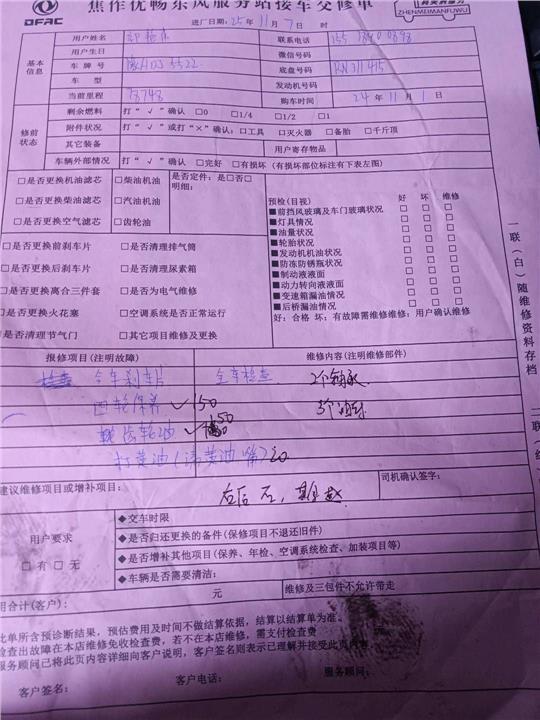 DFAC
焦作优畅东风服务站接车交修单
ZHENMEIMANFUWU
进厂日期: 25 年 11 月 7 日 时
基本信息
用户姓名 联系电话
用户生日 微信号码
车 牌 号 底盘号码 RN311415
车 型 发动机号码
当前里程 78748 购车时间 24 年 11 月 1 日
修前状况
剩余燃料 打“√”确认 □0 □1/4 □1/2 □1
附件状况 打“√”或打“×”确认: □工具 □灭火器 □备胎 □千斤顶
其它装备 用户寄存物品
车辆外部情况 打“√”确认 □完好 □有损坏 (有损坏部位标注有下表左图)
□是否更换机油滤芯 □柴油机油 是否定件: 是□否□
明细:
□是否更换柴油滤芯 □汽油机油
□是否更换空气滤芯 □齿轮油
□是否更换前刹车片 □是否清理排气筒
□是否更换后刹车片 □是否清理尿素箱
□是否更换离合三件套 □是否为电气维修
□是否更换火花塞 □空调系统是否正常运行
□是否清理节气门 □其它项目维修及更换
预检(目视) 好 坏 维修
■前挡风玻璃及车门玻璃状况 □ □ □
■灯具情况 □ □ □
■油量状况 □ □ □
■轮胎状况 □ □ □
■发动机机油状况 □ □ □
■防冻防锈瓶状况 □ □ □
■制动液液面 □ □ □
■动力转向液液面 □ □ □
■变速箱漏油情况 □ □ □
■后桥漏油情况 □ □ □
好: 合格 坏: 有故障需维修维修: 用户确认维修
一联(白)随维修资料存档
二联
报修项目(注明故障) 维修内容(注明维修部件)
全车刹车片 全车检查
四轮保养 ✓ 150
齿轮油 ✓ 150
打黄油
建议维修项目或增补项目: 司机确认签字:
左后
用户要求
□有 □无
◆交车时限
◆是否归还更换的备件(保修项目不退还旧件)
◆是否增补其他项目(保养、年检、空调系统检查、加装项目等)
◆车辆是否需要清洁:
用合计(客户): 元 维修及三包件不允许带走
此单所含预诊断结果, 预估费用及时间不做结算依据, 结算以结算单为准。
检查出故障在本店维修免收检查费, 若不在本店维修, 需支付检查费
服务顾问已将此页内容详细向客户说明, 客户签名则表示已理解并接受此页内容
客户签名: 客户电话: 服务顾问: